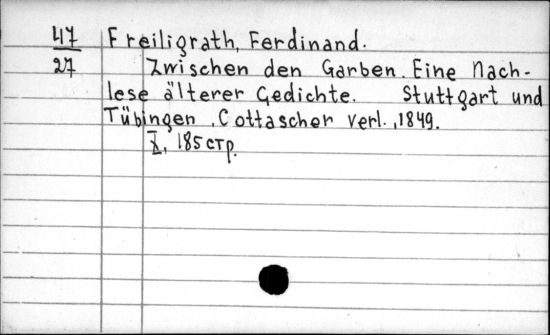 47 Freiligrath, Ferdinand.
27 Zwischen den Garben. Eine Nach-
lese älterer Gedichte. Stuttgart und
Tübingen, Cottascher Verl., 1849.
X, 185 стр.